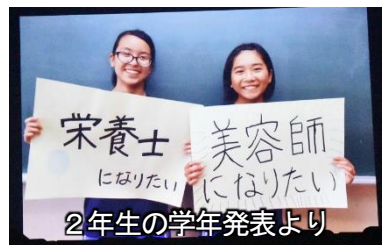 栄養士
になりたい
美容師
になりたい
2年生の学年発表より